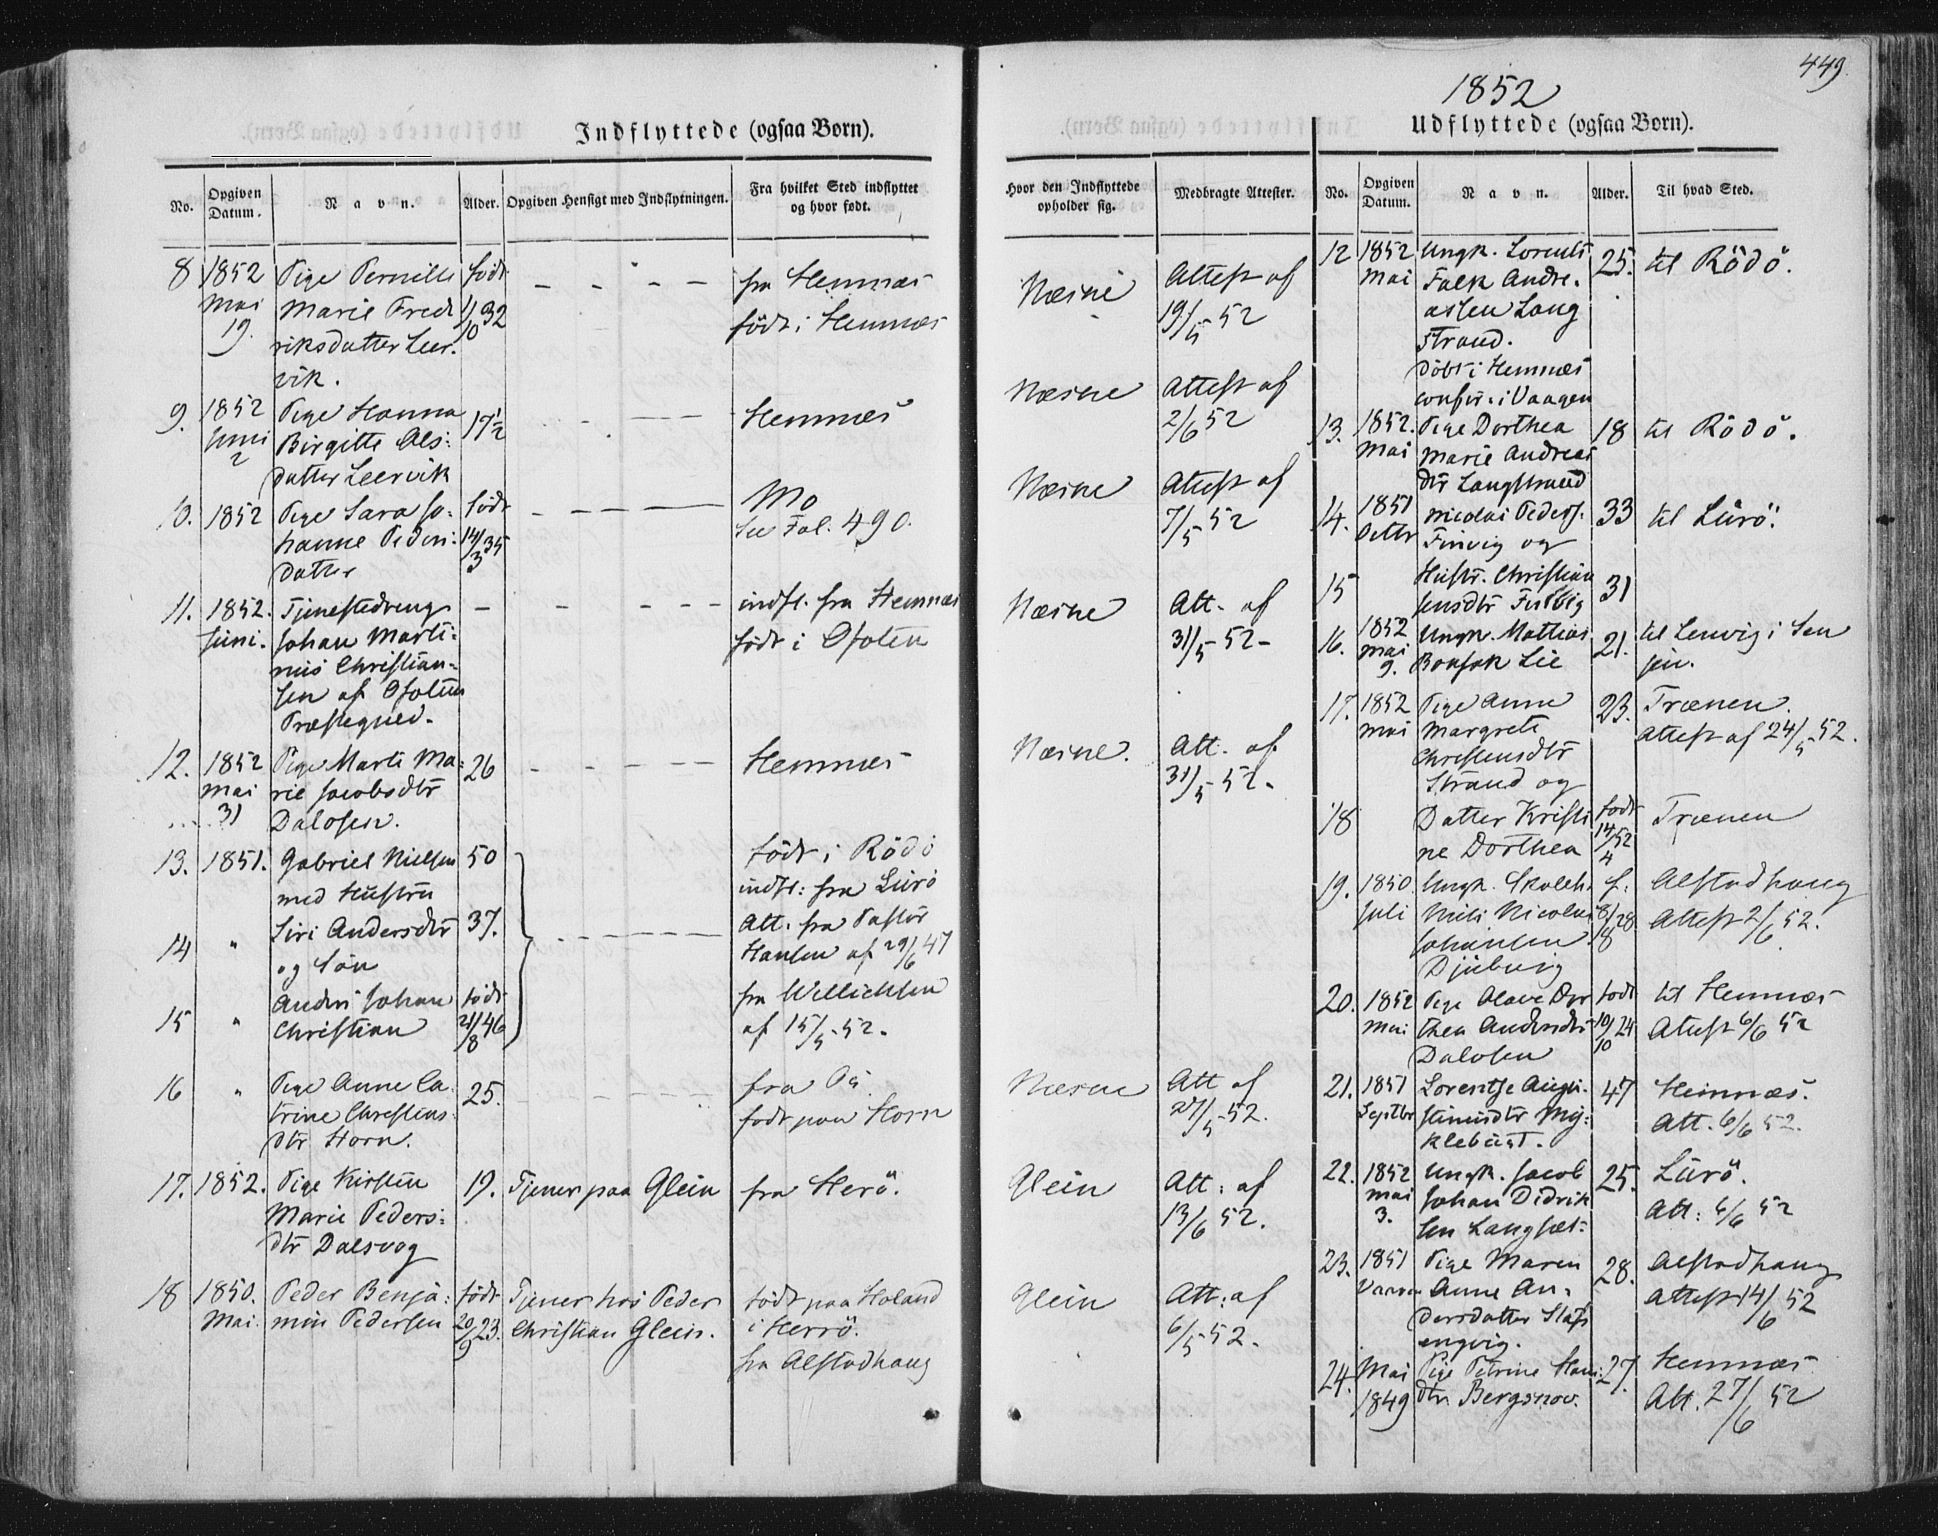 449.
1852
Indflyttede (ogsaa Børn).
No.
Opgiven Datum.
Navn.
Alder.
Opgiven Hensigt med Indflytningen.
Fra hvilket Sted indflyttet og hvor født.
Hvor den Indflyttede opholder sig.
Medbragte Attester.
8 1852 Pige Pernille født - - - - fra Hemnæs Næsne Attest af
Mai Marie Fred 1/10 32 født i Hemnæs 19/5 52
19. riksdatter Leer-
vik.
9. 1852 Pige Hanna 17½ - - - Hemnæs Næsne Attest af
Juni Birgitte Ols: 2/6 52
2 datter Leervik
10. 1852 Pige Sara Jo- født - - - - Mo Næsne Attest af
hanne Peders: 14/3 35 See Fol. 490. 7/5 52
datter
11. 1852. Tjenestedreng - - - - indfl. fra Hemnæs Næsne Att. af
Juni. Johan Marti: født i Ofoten 31/5 52-
nus Christian-
sen af Ofotens
Præstegjeld.
12. 1852 Pige Marti Ma: 26 - - - - Hemnæs Næsne. Att. af
Mai rie Jacobsdtr 31/5 52.
31 Dalosen.
13. 1851. Gabriel Nielsen 50 født i Rödö
med Hustru indfl: fra Lurö
14 " Siri Andersdtr 37. - - - - Att. fra Pastor
og Søn Hansen af 29/6 47
Anders Johan født fra Wellichsen
15 " Christian 21/8 46 af 15/5 52.
16 " Pige Anne Ca- 25. - - - - fra Næsne Att af
trine Christens: født paa Horn 27/5 52.
dtr Horn.
17. 1852. Pige Kirsten 19. Tjener paa Glein fra Herö. Glein Att: af
Marie Peders: 13/6 52.
dtr Dalsvog
18 1850. Peder Benja: født Tjener hos Peder født paa Haland Glein Att: af
Mai. min Pedersen 20/9 23. Christian Glein. i Herrö. 6/5 52.
fra Alstadhaug
Udflyttede (ogsaa Børn).
No.
Opgiven Datum.
Navn.
Alder.
Til hvad Sted.
12 1852 Ungk. Lorents 25. til Rödö.
Mai Falk Andre-
assen Lang
strand.
döbt i Hemnæs
confir. i Vaagen
13. 1852. Pige Dorthea 18 til Rödö.
Mai Marie Andreas
dtr Langstrand
14. 1851 Nicolai Peders. 33 til Lurö.
Octbr Finvig og
15 Hustr. Christian 31
sensdtr Finvig
16. 1852 Ungk. Mathias 21. til Lenvig i Sen
Mai 9. Lie jen.
17. 1852 Pige Anne 23. Trænen.
Mai Margrete Attest af 24/5 52.
Christensdtr
Strand og
18 Datter Kristi født Trænen
ne Dorthea 14/4 52
19. 1850. Ungk. f. Alstadhaug
Juli Nicolai 8/8 28 Attest 2/6 52.
Johansen
Djubvig
20. 1852 Pige Olave Dor født til Hemnæs
Mai thea Andersdtr 10/10 24 Attest 6/6 52
Dalosen
21. 1851 Lorentse Augu- 47 Hemnæs.
Septbr stinusdtr My: Att. 6/6 52.
klebust.
22. 1852 Ungk. Jacob 25. Lurö.
Mai Johan Didrik Att: 6/6 52
3. sen Langsæt.
23. 1851 Pige Maren 28. Alstadhaug
Anne An- Attest 14/6 52
dersdatter
engvig.
24. Mai Pige Petrine Hans: 27. Hemnæs
1849 dtr. Bergsnov. Att. 27/6 52